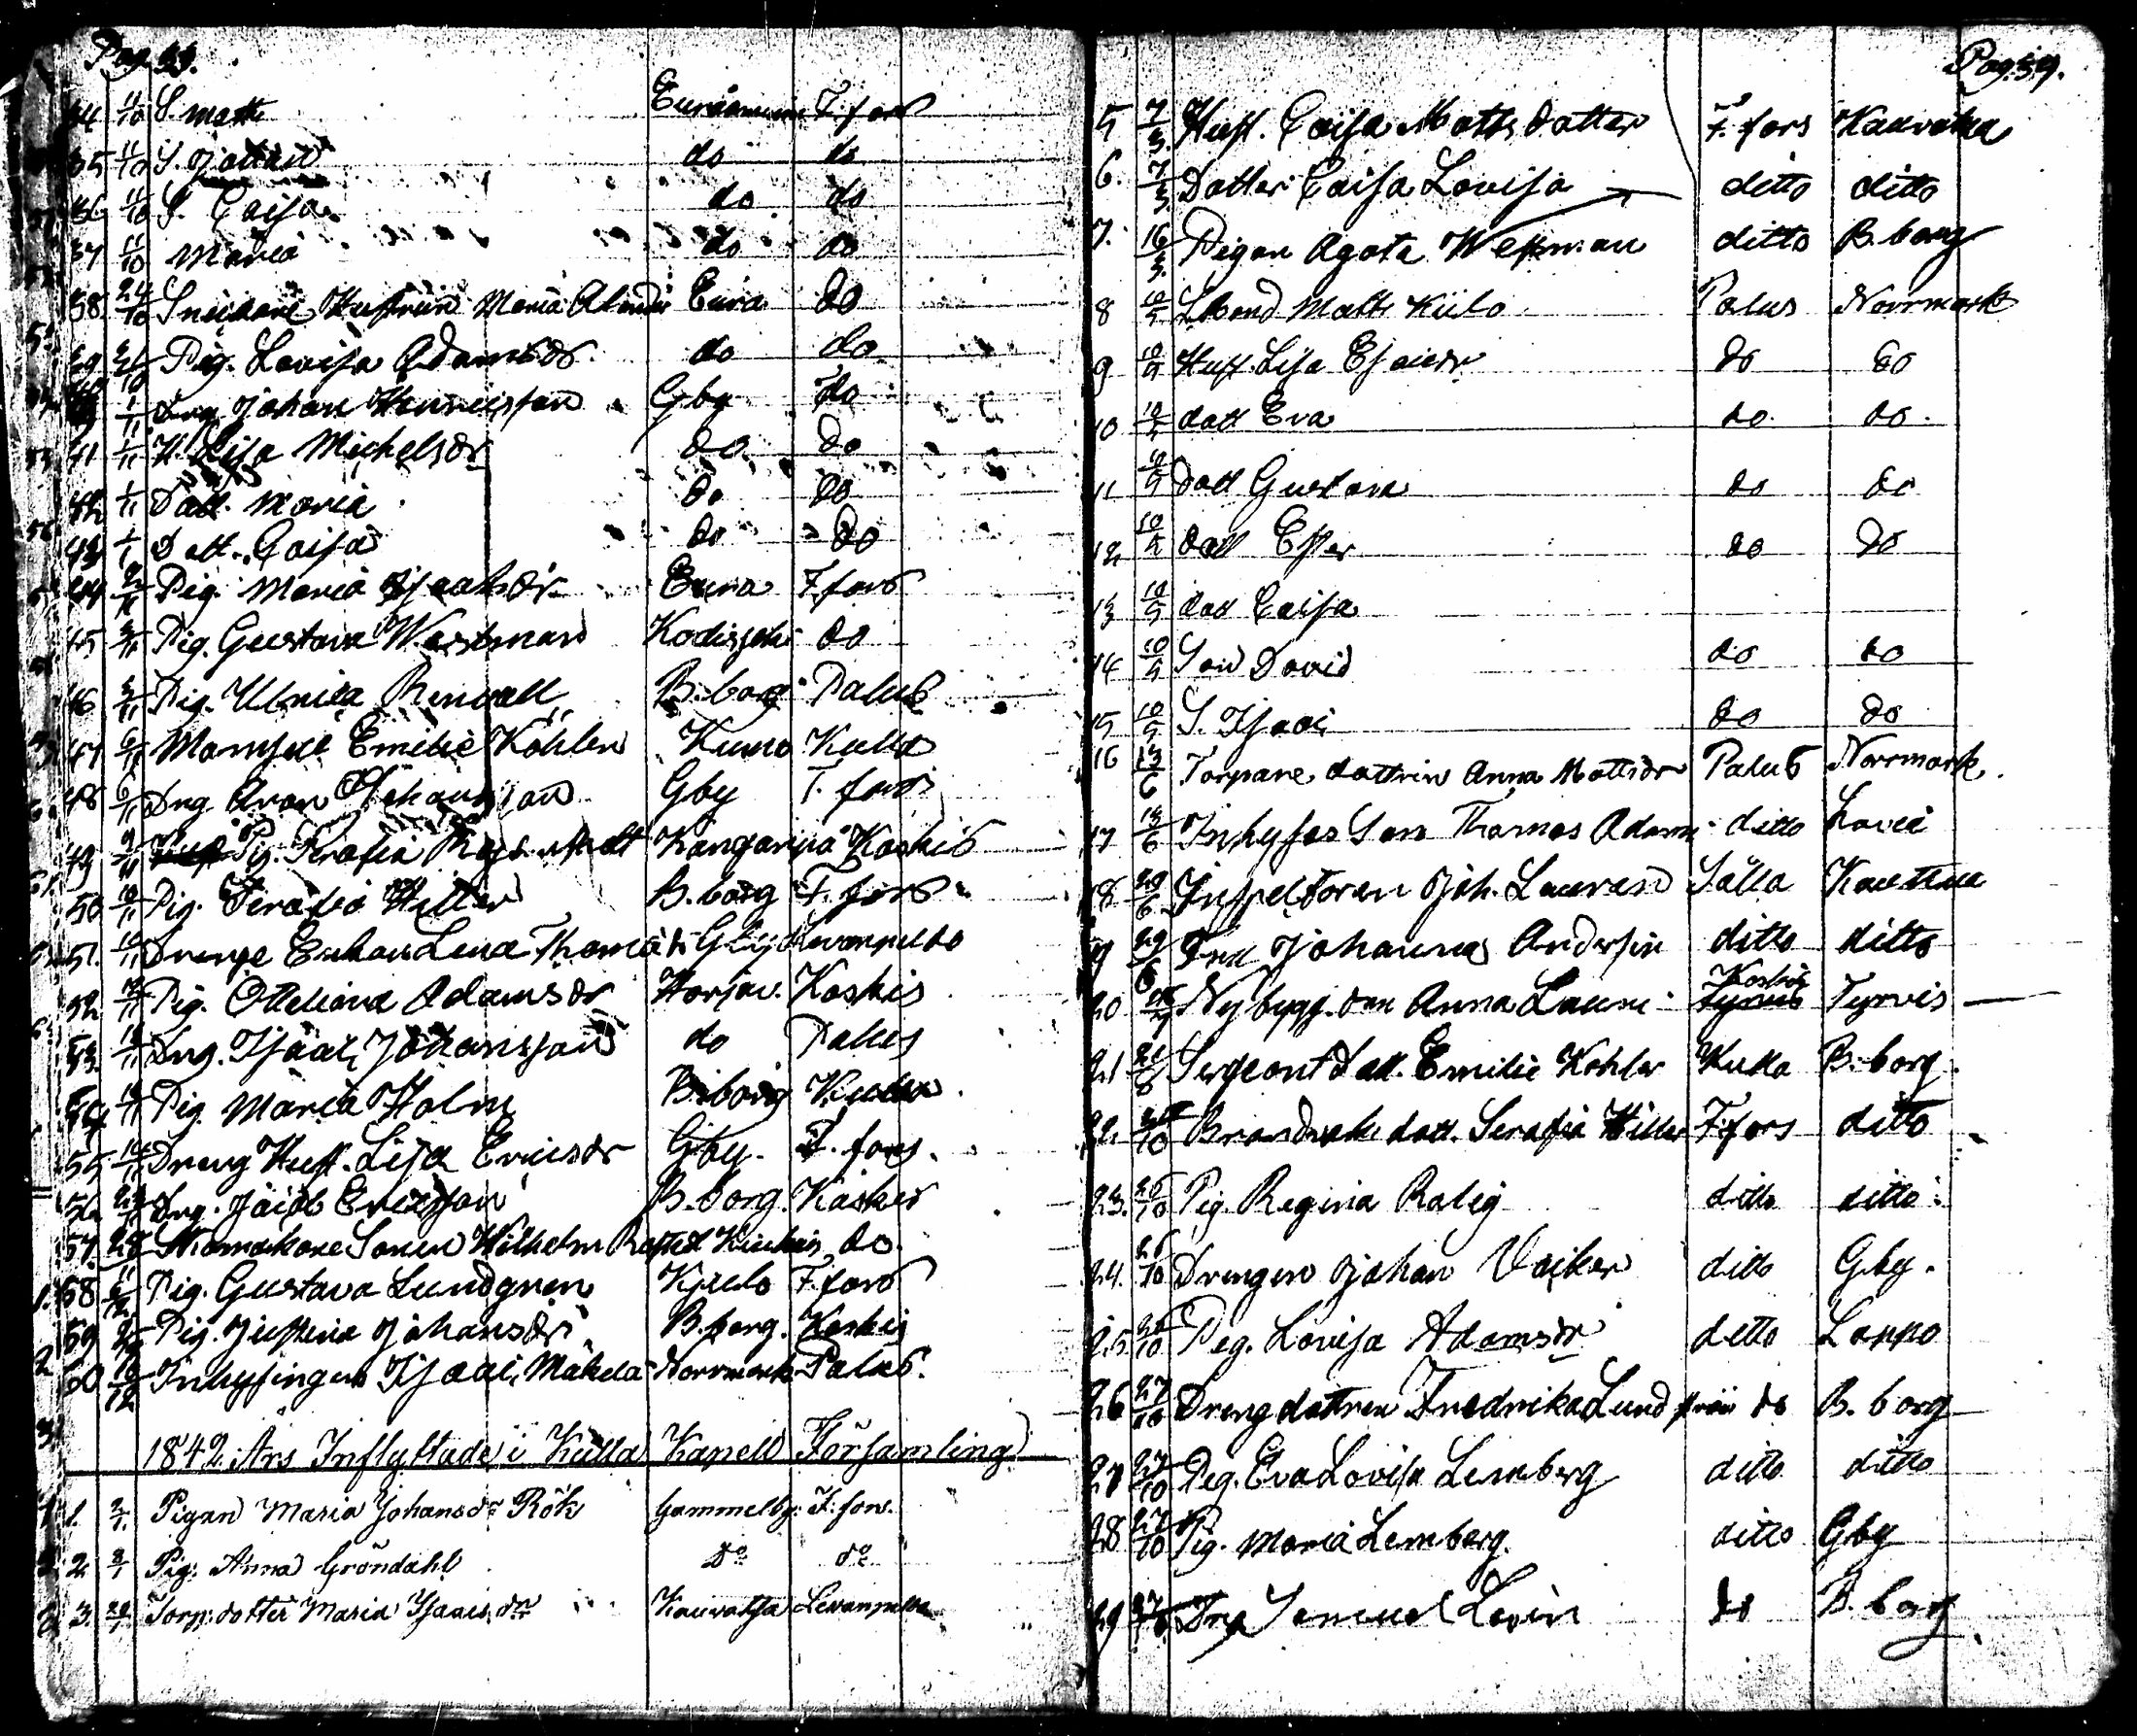 Pag.
34 11/10 S. Matts Euraåminne F. fors
35 11/10 S. Johan do do
36 11/10 S. Caisa do do
37 11/10 Maria do do
38 24/10 Snickare Hustrun Maria Eura do
39 Pig. Lovisa Adamsdr do do
40 1/11 Dng Johan Henricsson Gby do
41 1/11 H. Lisa Michelsdr do do
42 1/11 Datt. Maria do do
43 Datt. Caisa do do
44 Pig. Maria Isaaksdr Eura F.fors
45 Pig. Gustava Westman Kodisjoki do
46 Pig. Ulrica Renvall B. borg Palus
47 6/11 Mamsell Emilie Köhler Kumo Kulla
48 6/11 Dng Aron Johansson Gby F. fors
49 9/11 Pig. Serafia Kangarpää Koskis
50 10/11 Pig. Serafia Hiller B. borg F. fors
51. 10/11 Drenge Enkan Lena Thomasdr Gby Levanpelto
52 Pig. Ottiliana Adamsdr Harjav. Koskis
53. Dng. Isaac Johansson do Palus
54 Pig Maria Holm B. borg Kulla
55 Dreng Hust. Lisa Ericsdr Gby. F. fors.
56 Dng. Jacob Ericsson B. borg. Koskis
57. Skomakare Sonen Wilhelm do.
58 Pig. Gustava Lundgren Kjulo F. fors
59 Pig. Justina Johansdr B. borg. Koskis
60 10/12 Inhysingen Isaac Mäkelä Norrmark Palus.
1842 Års Inflyttade i Kulla Kapell Församling
1. 2/1. Pigan Maria Johansdr Rök Gammelby. F. fors.
2. 8/1 Pig. Anna Gröndahl do do
3. Torp: dotter Maria Isaacsdr Kauvatsa Levanpelto
Pag. 39.
5 7/3. Hust. Caisa Matts dotter F. fors Kauvatsa
6. 7/3. Dotter Caisa Lovisa ditto ditto
7. 16/3. Pigan Agata Westman ditto B. borg
8 10/5 Lbond Matts Kiilo Palus Norrmark
9 10/5 Hust. Lisa Esaiedr do do
10 10/5 datt Eva do. do.
11 10/5 datt Gustava do do
12 10/5 datt Ester do do
13 10/5 datt Caisa
14 10/5 Son David do do
15 10/5 S. Isaac do do
16 13/6 Torpare dottren Anna Mattsdr Palus Norrmark.
17 13/6 Inhyses Son Thomas Adam ditto Lavia
18 29/6 Inspektoren Joh. Lauren Sälla Kauttua
19 29/6 Johanna Andersin ditto ditto
20 Nybygg. dan Anna Lauri Koskis Tyrvis
21 Sergeant datt. Emilie Kohler Kulla B. borg.
22. Brandvakt datt. Serafia Hiller F. fors ditto
23. 26/10 Pig. Regina Ralig ditto ditto
24. 26/10 Drengen Johan Vacker ditto Gby.
25 26/10 Pig. Lovisa Adamsdr ditto Lappo
26 27/10 Dreng dottren Fredrika Lund från do B. borg
27 27/10 Pig. Eva Lovisa Lemberg ditto ditto
28 27/10 Pig. Maria Lemberg. ditto Gby
29 27/10 Dng Samuel Levin do B. borg